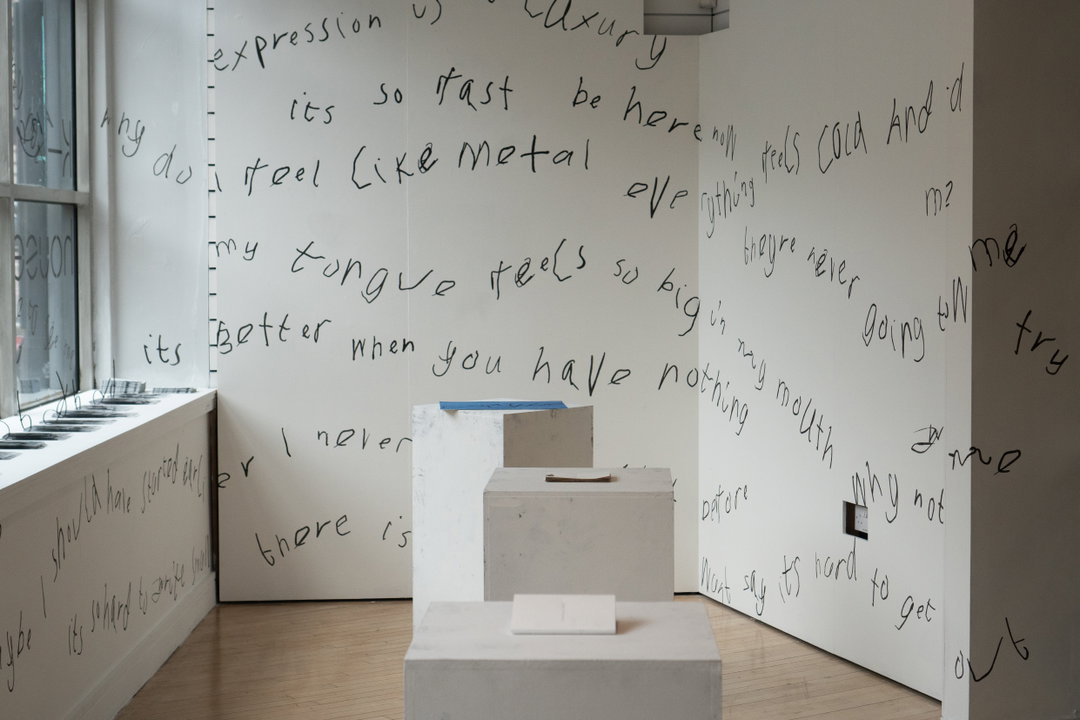 expression luxury
its so fast be here now feels cold And i'd
why do i feel like metal everything
theyre never going to me
my tongue feels so big in my mouth why not
try
its Better when you have nothing
er I never before
there is
want say its hard to get out
I should have started
its so hard to
house